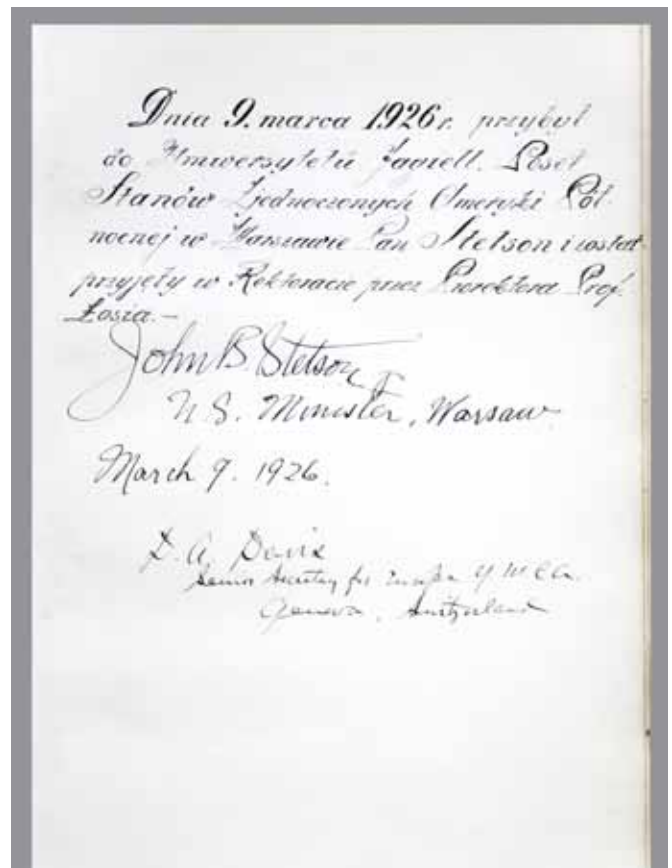 Dnia 9. marca 1926 r. przybył
do Uniwersytetu Jagiell. Poseł
Stanów Zjednoczonych Ameryki Pół-
nocnej w Warszawie Pan Stetson i został
przyjęty w Rektoracie przez Prorektora Prof.
Łosia.—
John B. Stetson Jr
U.S. Minister, Warsaw.
March 9. 1926.
D. A. Davis
Senior Secretary for Europe Y M C A.
Geneva, Switzerland